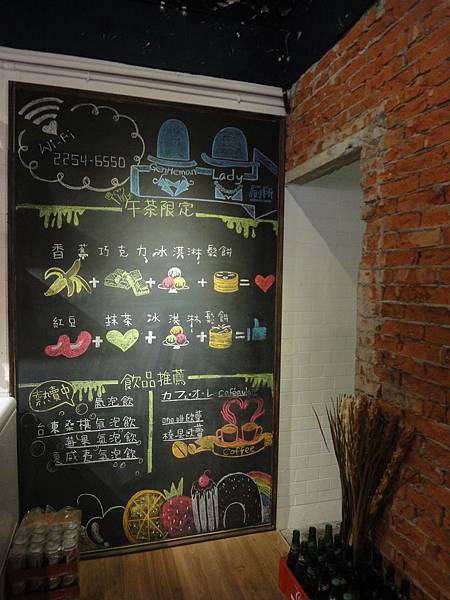 Wi-Fi
2254-6550
Gentleman
Lady
廁所
午茶限定
香蕉巧克力冰淇淋鬆餅
+ + + =
紅豆 抹茶 冰淇淋鬆餅
+ + + =
飲品推薦
熱賣中
氣泡飲
台東桑椹氣泡飲
蘋果氣泡飲
夏威夷氣泡飲
カフェ・オ・レ
咖啡歐蕾
榛果歐蕾
Coffee